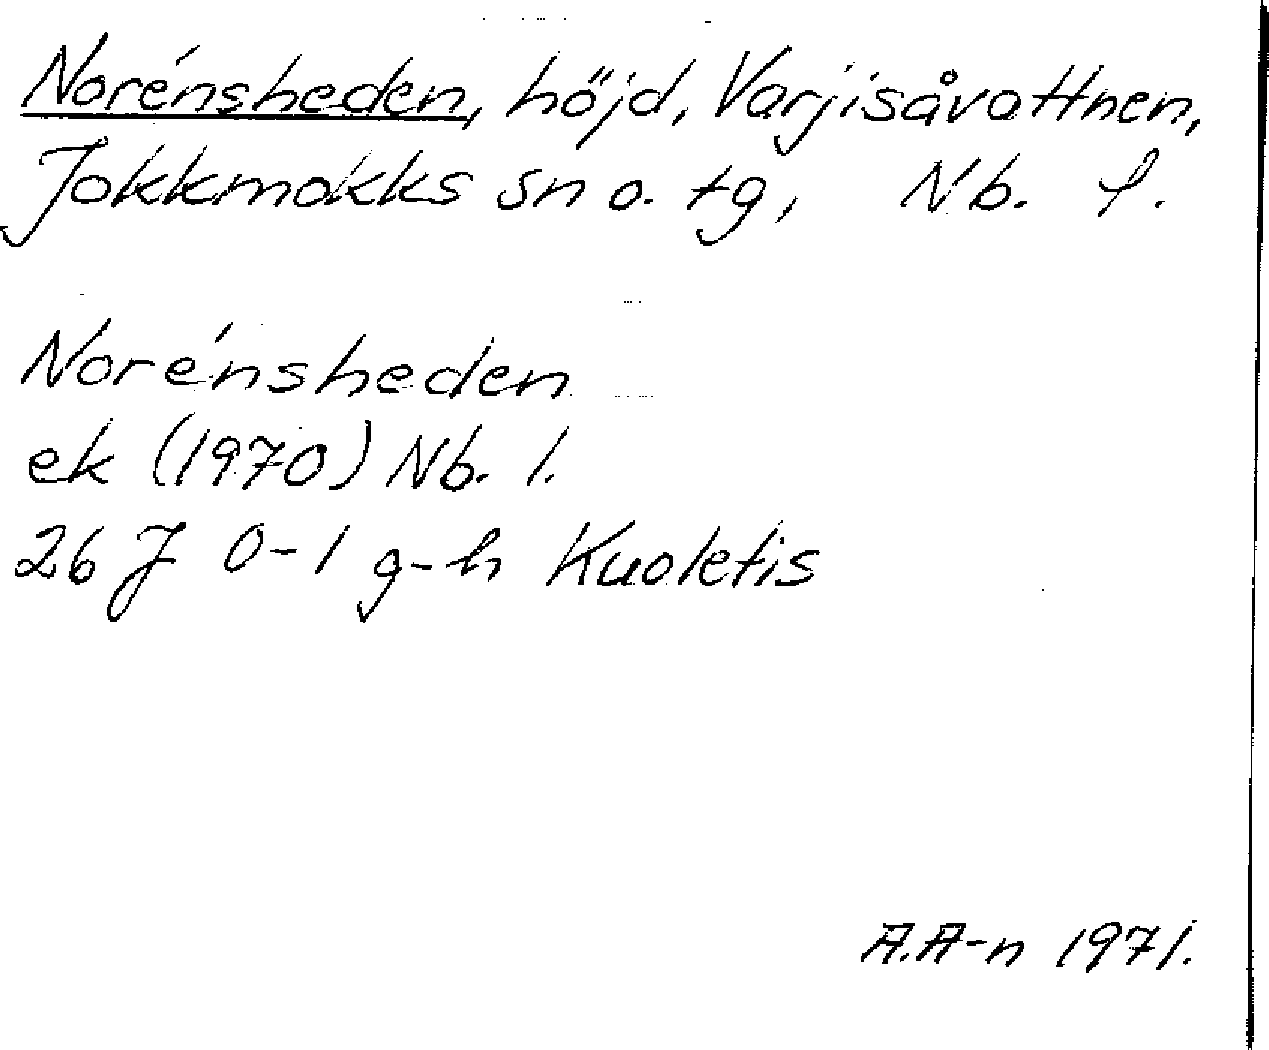 Norénsheden, höjd, Varjisåvattnen,
Jokkmokks sn o. tg, Nb. l.
Norénsheden
ek (1970) Nb. l.
26 J 0-1 g-h Kuoletis
A.A-n 1971.